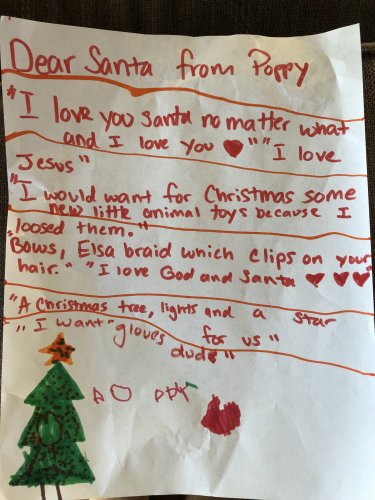 Dear Santa from Poppy
"I love you Santa no matter what
and I love you ❤" "I love
Jesus"
"I would want for Christmas some
new little animal toys because I
loosed them."
"Bows, Elsa braid which clips on your
hair." "I love God and Santa ❤❤❤"
"A Christmas tree, lights and a star
for us"
"I want gloves
dude"